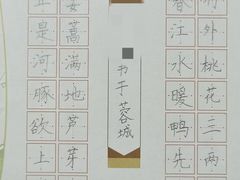 外桃花三两
春江水暖鸭先
书于蓉城
蒌蒿满地芦芽
正是河豚欲上